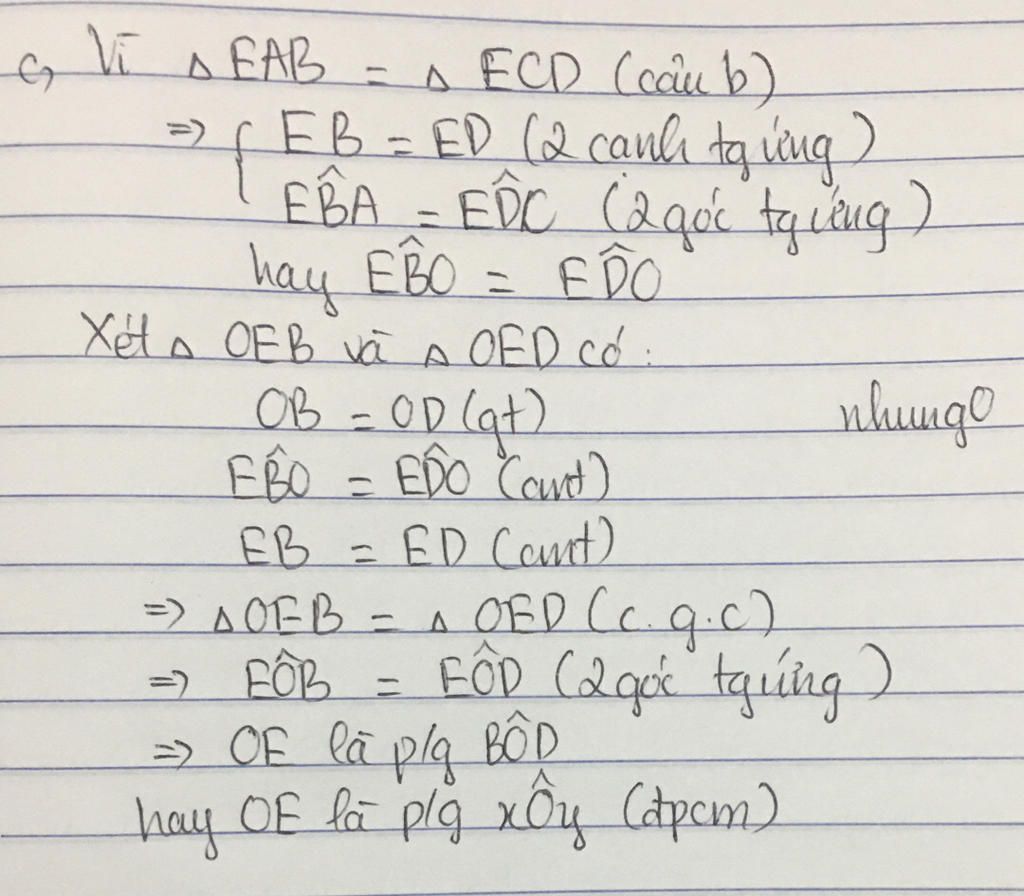 c, Vì △ EAB = △ ECD (câu b)
=> { EB = ED (2 cạnh tg ứng)
EB̂A = ED̂C (2 góc tg ứng)
hay EB̂O = ED̂O
Xét △ OEB và △ OED có:
OB = OD (gt)
nhungO
EB̂O = ED̂O (cmt)
EB = ED (cmt)
=> △OEB = △ OED (c.g.c)
=> EÔB = EÔD (2 góc tg ứng)
=> OE là p/g BÔD
hay OE là p/g xÔy (đpcm)